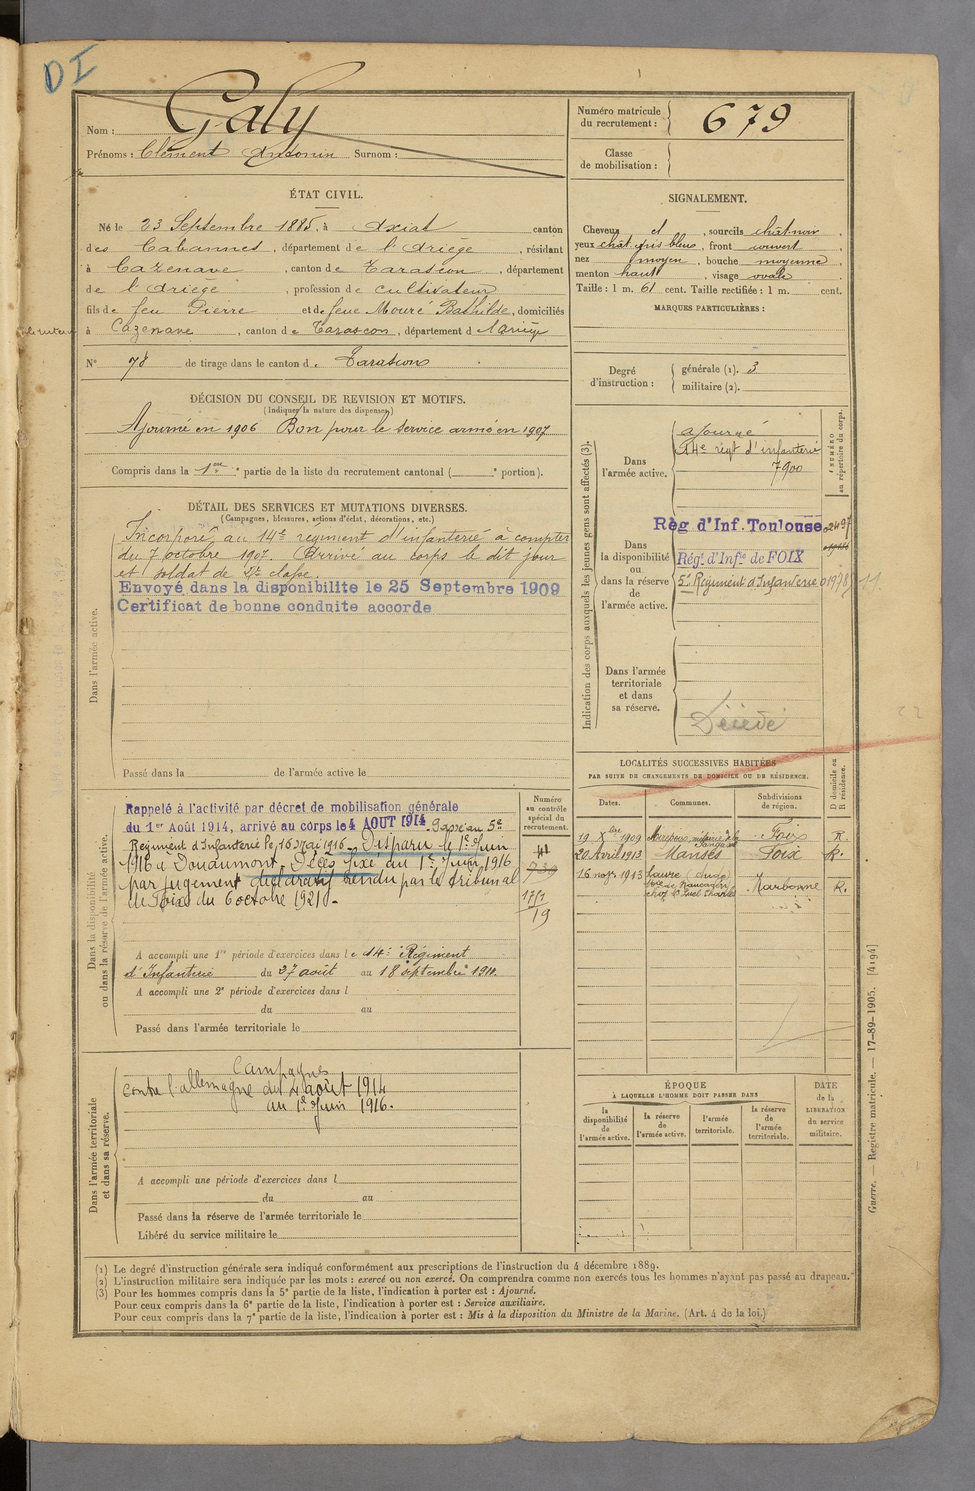 DI
Nom : Galy
Prénoms : Clément Antonin Surnom :
Numéro matricule
du recrutement : 679
Classe
de mobilisation :
ÉTAT CIVIL.
Né le 23 Septembre 1885, à Axiat canton
des Cabannes, département de l'Ariège, résidant
à Cazenave, canton de Tarascon, département
de l'Ariège, profession de cultivateur
fils de feu Pierre et de feue Mouré Bathilde, domiciliés
à Cazenave, canton de Tarascon, département d l'Ariège
N° 78 de tirage dans le canton d. Tarascon
SIGNALEMENT.
Cheveux et, sourcils chât noir,
yeux chât gris bleus, front couvert,
nez moyen, bouche moyenne,
menton haut, visage ovale
Taille : 1 m. 61 cent. Taille rectifiée : 1 m. cent.
MARQUES PARTICULIÈRES :
Degré
d'instruction :
générale (1). 3
militaire (2).
DÉCISION DU CONSEIL DE REVISION ET MOTIFS.
(Indiquer la nature des dispenses)
Ajourné en 1906 Bon pour le service armé en 1907
Compris dans la 1ère partie de la liste du recrutement cantonal ( portion).
DÉTAIL DES SERVICES ET MUTATIONS DIVERSES.
(Campagnes, blessures, actions d'éclat, décorations, etc.)
Dans l'armée active.
Incorporé au 14e régiment d'infanterie à compter
du 7 octobre 1907. Arrivé au corps le dit jour
et soldat de 2e classe.
Envoyé dans la disponibilite le 25 Septembre 1909
Certificat de bonne conduite accorde
Passé dans la de l'armée active le
Indication des corps auxquels les jeunes gens sont affectés (3).
NUMÉRO
au répertoire du corps.
Dans
l'armée active.
ajourné
14e régt d'infanterie
7900
Dans
la disponibilité
ou
dans la réserve
de
l'armée active.
Règ d'Inf. Toulouse
Régt d'Infie de FOIX
5e Régiment d'Infanterie
11
Dans l'armée
territoriale
et dans
sa réserve.
Décédé
LOCALITÉS SUCCESSIVES HABITÉES
PAR SUITE DE CHANGEMENTS DE DOMICILE OU DE RÉSIDENCE.
D domicile ou
R résidence.
Dates. Communes. Subdivisions
de région.
19 Xbre 1909 Foix R.
20 Avril 1913 Manses Foix R.
16 novr 1913 (Aude) Narbonne R.
Dans la disponibilité
ou dans la réserve de l'armée active.
Numéro
au contrôle
spécial du
recrutement.
Rappelé à l'activité par décret de mobilisation générale
du 1er Août 1914, arrivé au corps le 4 AOUT 1914. Passé au 5e
Régiment d'Infanterie le 16 Mai 1916. Disparu le 1er Juin
1916 à Douaumont. Décès fixé au 1er Juin 1916
par jugement déclaratif rendu par le tribunal
de Foix du 6 octobre 1921.
19
A accompli une 1re période d'exercices dans le 14e Régiment
d'Infanterie du 27 août au 18 septembre 1911.
A accompli une 2e période d'exercices dans l
du au
Passé dans l'armée territoriale le
Dans l'armée territoriale
et dans sa réserve.
Campagnes
Contre l'allemagne du 4 août 1914
au 1er Juin 1916.
A accompli une période d'exercices dans l
du au
Passé dans la réserve de l'armée territoriale le
Libéré du service militaire le
ÉPOQUE
À LAQUELLE L'HOMME DOIT PASSER DANS
la
disponibilité
de
l'armée active.
la réserve
de
l'armée active.
l'armée
territoriale.
la réserve
de
l'armée
territoriale.
DATE
de la
LIBÉRATION
du service
militaire.
Guerre. — Registre matricule. — 17-89-1905. [4194]
(1) Le degré d'instruction générale sera indiqué conformément aux prescriptions de l'instruction du 4 décembre 1889.
(2) L'instruction militaire sera indiquée par les mots : exercé ou non exercé. On comprendra comme non exercés tous les hommes n'ayant pas passé au drapeau.
(3) Pour les hommes compris dans la 5e partie de la liste, l'indication à porter est : Ajourné.
Pour ceux compris dans la 6e partie de la liste, l'indication à porter est : Service auxiliaire.
Pour ceux compris dans la 7e partie de la liste, l'indication à porter est : Mis à la disposition du Ministre de la Marine. (Art. 4 de la loi.)